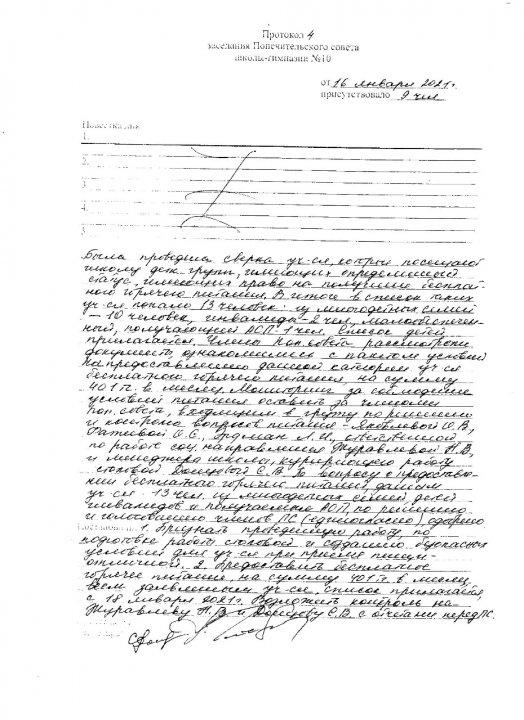 Протокол 4
заседания Попечительского совета
школы-гимназии №10
от 16 января 2021г.
присутствовало 9 чел
Повестка дня
1.
2.
3.
4.
5.
Была проведена сверка уч-ся, которые посещают
школу деж. групп, имеющих определенный
статус, имеющих право на получение бесплат-
ного горячего питания. В итоге в список таких
уч-ся попало 13 человек: из многодетных семей
– 10 человек, инвалида – 2 чел, малообеспечен-
ный, получающий АСП 1 чел. Список детей
прилагается. Члены поп.совета рассмотрели
документы, ознакомились с пакетом условий
на предоставление данной категории уч-ся
бесплатного горячего питания на сумму
401 тг. в месяц. Мониторинг за соблюдение
условий питания оставить за членами
поп. совета, входящими в группу по решению
и контролю вопросов питания – Яковлевой О.В,
О.С., Эрдман Л.И., ответственной
по работе соц. направления Журавлевой Н.В,
и менеджера школы, курирующего работу
столовой С.В. По вопросу о предоставле-
нии бесплатного горячего питания, данным
уч-ся – 13 чел. из многодетных семей, детей
инвалидов и получаемого АСП, по решению
и голосованию членов ПС (единогласно) одобрено
Постановили: 1. Признать проведенную работу по
подготовке работы столовой и созданию безопасных
условий для уч-ся при приеме пищи –
отличной. 2. Предоставить бесплатное
горячее питание, на сумму 401 тг. в месяц
всем заявленным уч-ся, список прилагается,
с 18 января 2021г. Возложить контроль на
Журавлеву Н.В и С.В с отчетами перед ПС.